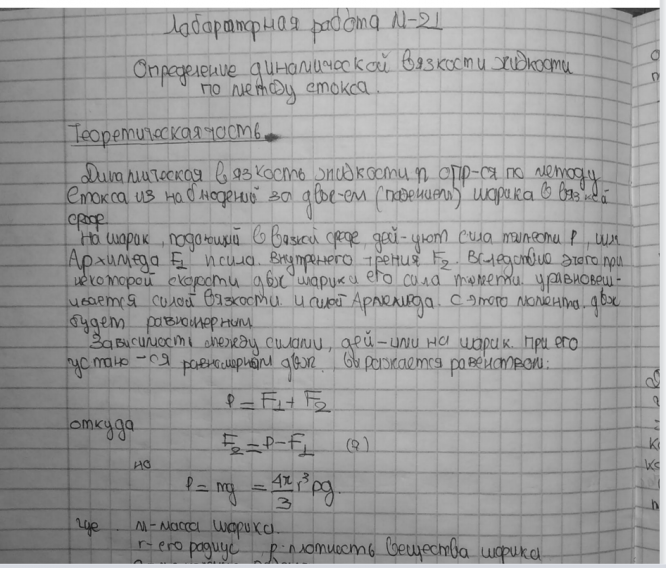 Лабараторная работа N-21
Определение динамической вязкости жидкости
по методу стокса.
Теоретическая часть
Динамическая вязкость жидкости η опр-ся по методу
Стокса из наблюдений за движ-ем (падением) шарика в вязкой
среде
На шарик, подающий в вязкой среде, дей-уют сила тяжести P,
Архимеда F1 и сила внутреннего трения F2. Вследствие этого при
некоторой скорости движ шарика его сила тяжести уравновеш-
ивается силой вязкости и силой Архимеда. с этого момента движ
будет равномерным
Зависимость между силами, дей-ими на шарик при его
устано-ся равномерном движ. выражается равенством:
P = F1 + F2
откуда
F2 = P - F1 (2)
но
P = mg = 4π/3 r³ρg.
где m-масса шарика.
r-его радиус ρ-плотность вещества шарика